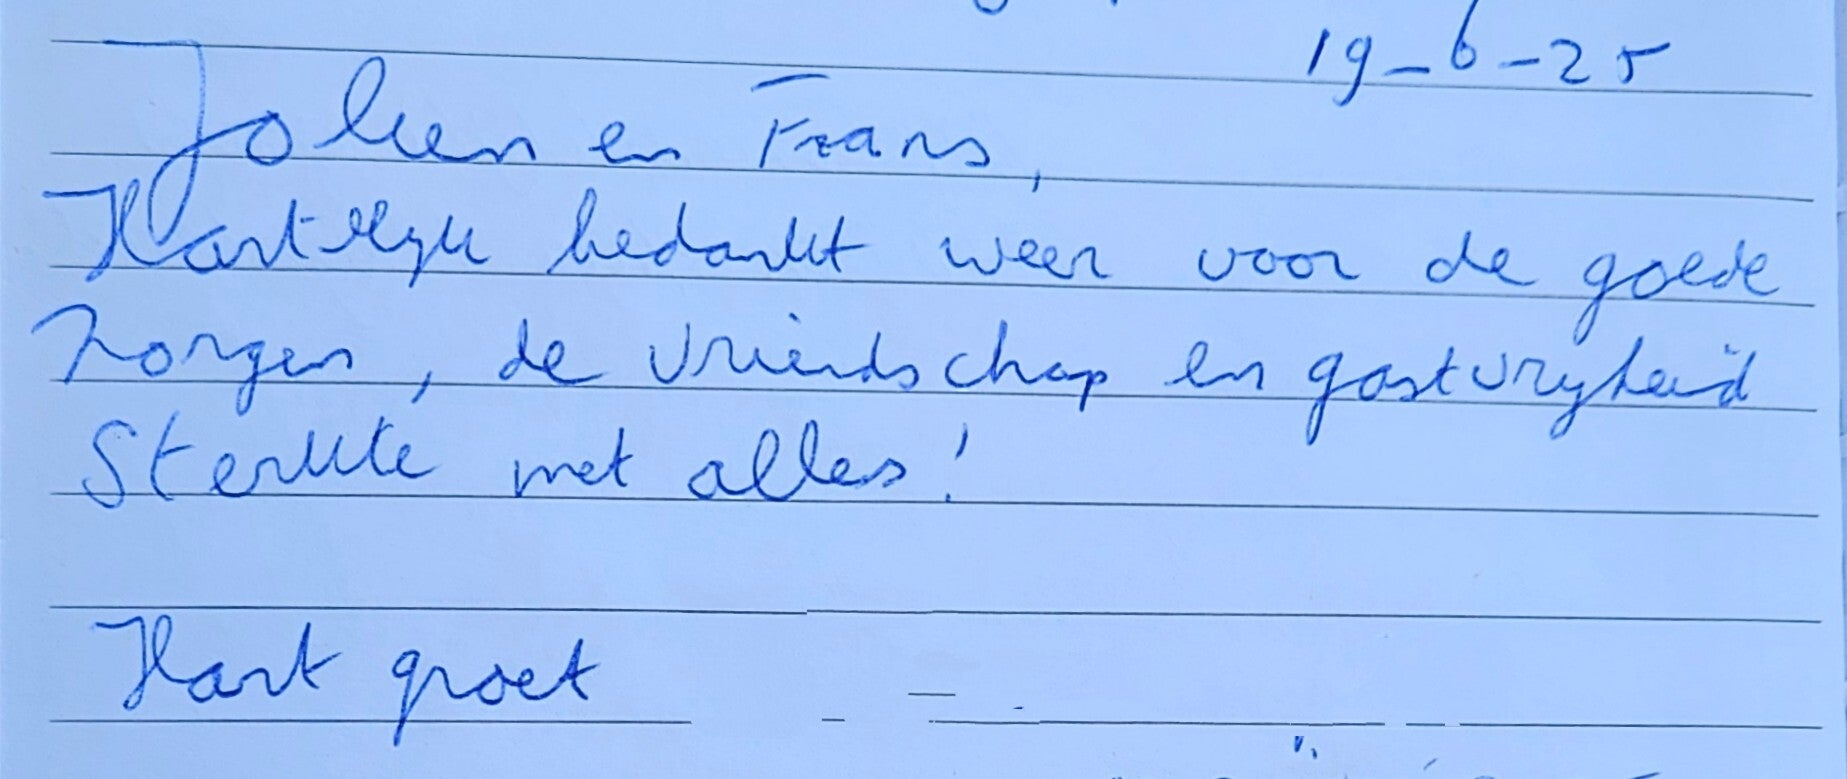 19-6-25
Jolien en Frans,
Hartelijk bedankt weer voor de goede
zorgen, de vriendschap en gastvrijheid
Sterkte met alles!
Hart groet